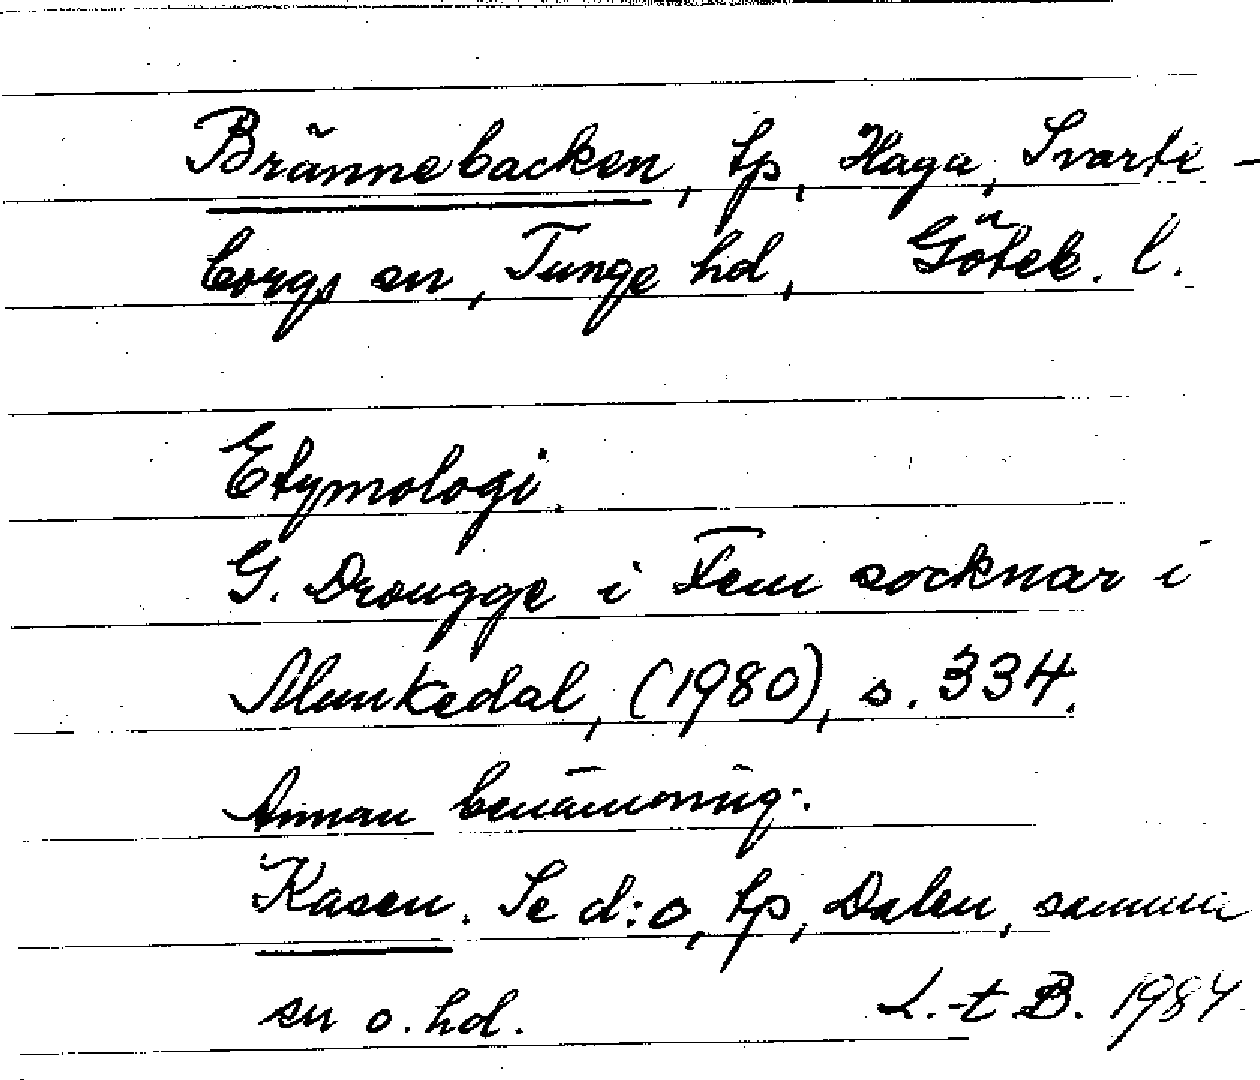 Brännebacken, tp, Haga, Svarte-
borgs sn, Tunge hd, Göteb. l.
Etymologi.
G. Drougge i Fem socknar i
Munkedal, (1980), s. 334.
Annan benämning.
Kasen. Se d:o, tp, Dalen, samma
sn o. hd. L.-t B. 1984